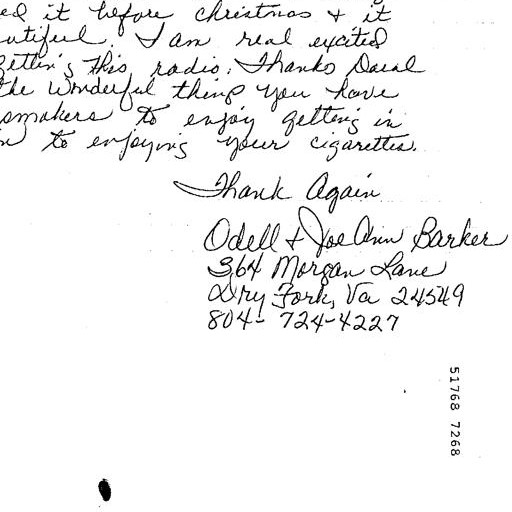 ed it before christmas & it
utiful. I am real excited
etting this radio. Thanks
the wonderful thing you have
smokers to enjoy getting in
n to enjoying your cigarettes.
Thank Again
Odell & Joe Ann Barker
364 Morgan Lane
Dry Fork, Va 24549
804- 724-4227
51768 7268